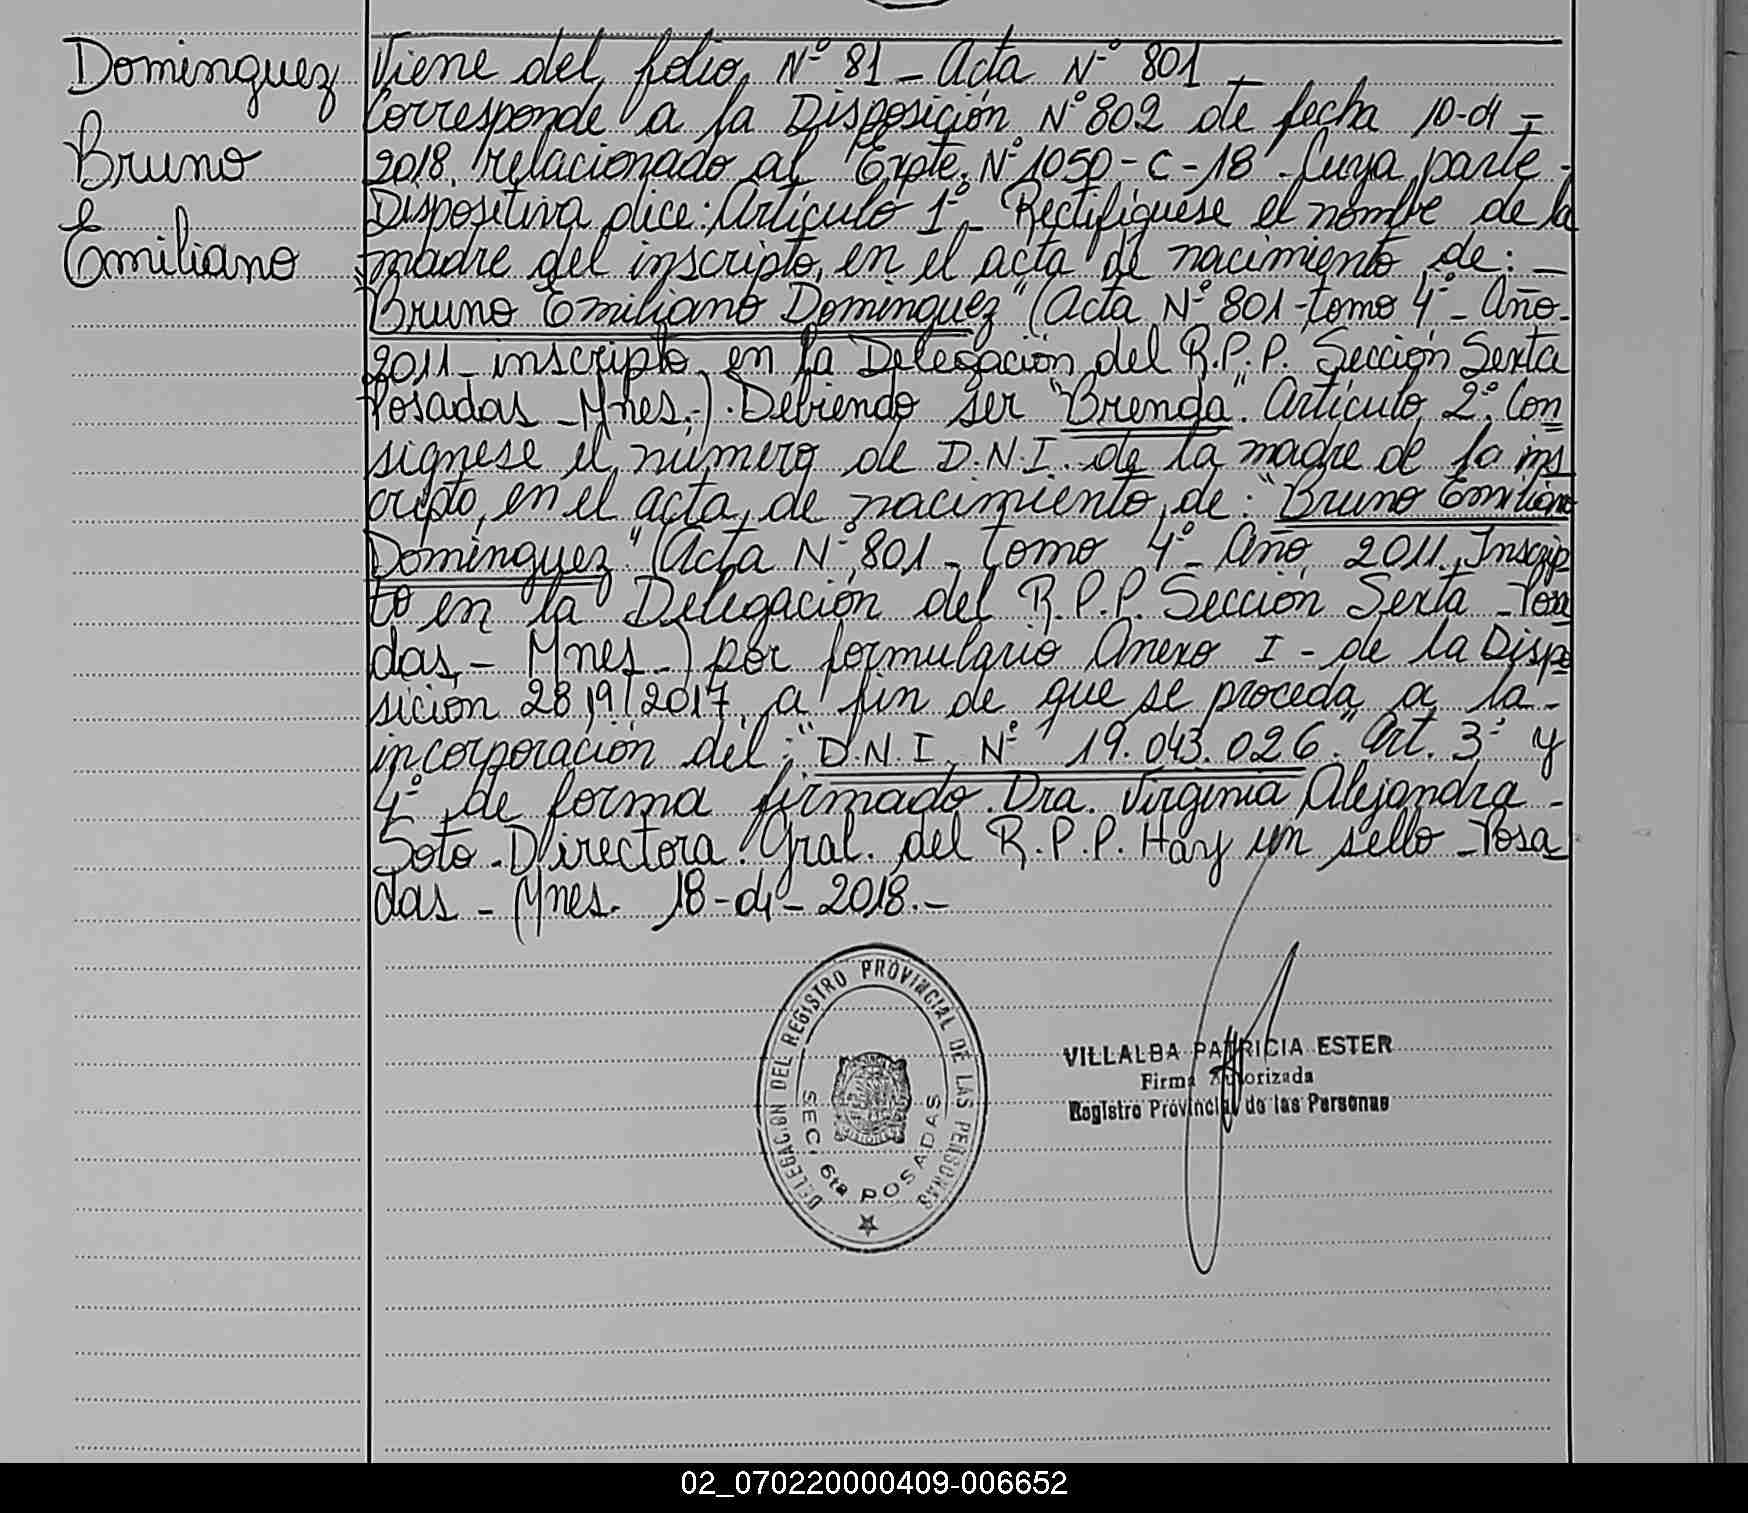 Dominguez
Bruno
Emiliano
Viene del folio N° 81 - Acta N° 801 -
Corresponde a la Disposición N° 802 de fecha 10-04-
2018, relacionado al Expte. N° 1050-C-18. Cuya parte-
Dispositiva dice: Artículo 1°- Rectifíquese el nombre de la
madre del inscripto, en el acta de nacimiento, de: -
"Bruno Emiliano Dominguez" (Acta N° 801-tomo 4°- Año-
2011- inscripto, en la Delegación del R.P.P. Sección Sexta
Posadas -Mnes.-). Debiendo ser "Brenda". Artículo 2°. Con
signese el número de D.N.I. de la madre de lo ins
cripto, en el acta, de nacimiento, de: "Bruno Emiliano
Dominguez" (Acta N° 801- tomo 4°- Año, 2011. Inscrip
to en la Delegación del R.P.P. Sección Sexta -Posa
das,- Mnes.-) por formulario Anexo I - de la Dispo
sición 28/9/2017, a fin de que se proceda a la-
incorporación del: "D.N.I. N° 19.043.026". Art. 3° y
4° de forma firmado. Dra. Virginia Alejandra -
Soto. Directora Gral. del R.P.P. Hay un sello -Posa
das - Mnes. 18-04-2018.-
DELEGACIÓN DEL REGISTRO PROVINCIAL DE LAS PERSONAS
SEC. 6ta POSADAS
VILLALBA PATRICIA ESTER
Firma Autorizada
Registro Provincial de las Personas
02_070220000409-006652